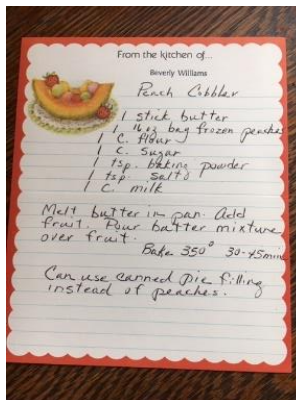 From the kitchen of...
Beverly Williams
Peach Cobbler
1 stick butter
1 16 oz bag frozen peaches
1 C. flour
1 C. sugar
1 tsp. baking powder
1 tsp. salt
1 C. milk
Melt butter in pan. Add
fruit. Pour batter mixture
over fruit.
Bake 350° 30-45 min
Can use canned pie filling
instead of peaches.